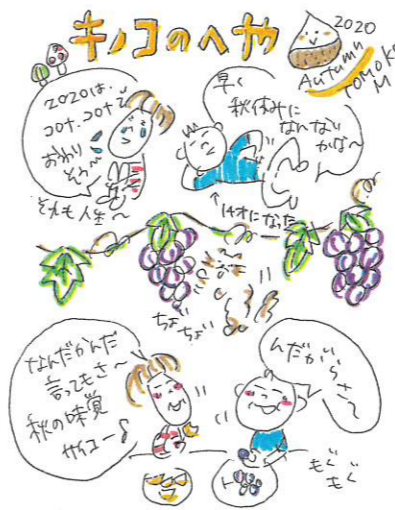 キノコのへや
2020
Autumn
TOMOKO
M
2020は、
コロナ、コロナで
おわり
そう〜
それも人生〜
早く
秋休みに
なんない
かな〜
↑14才になった
ちょい
ちょい
なんだかんだ
言ってもさ〜
秋の味覚
サイコー♪
んだがらさ〜
もぐ
もぐ